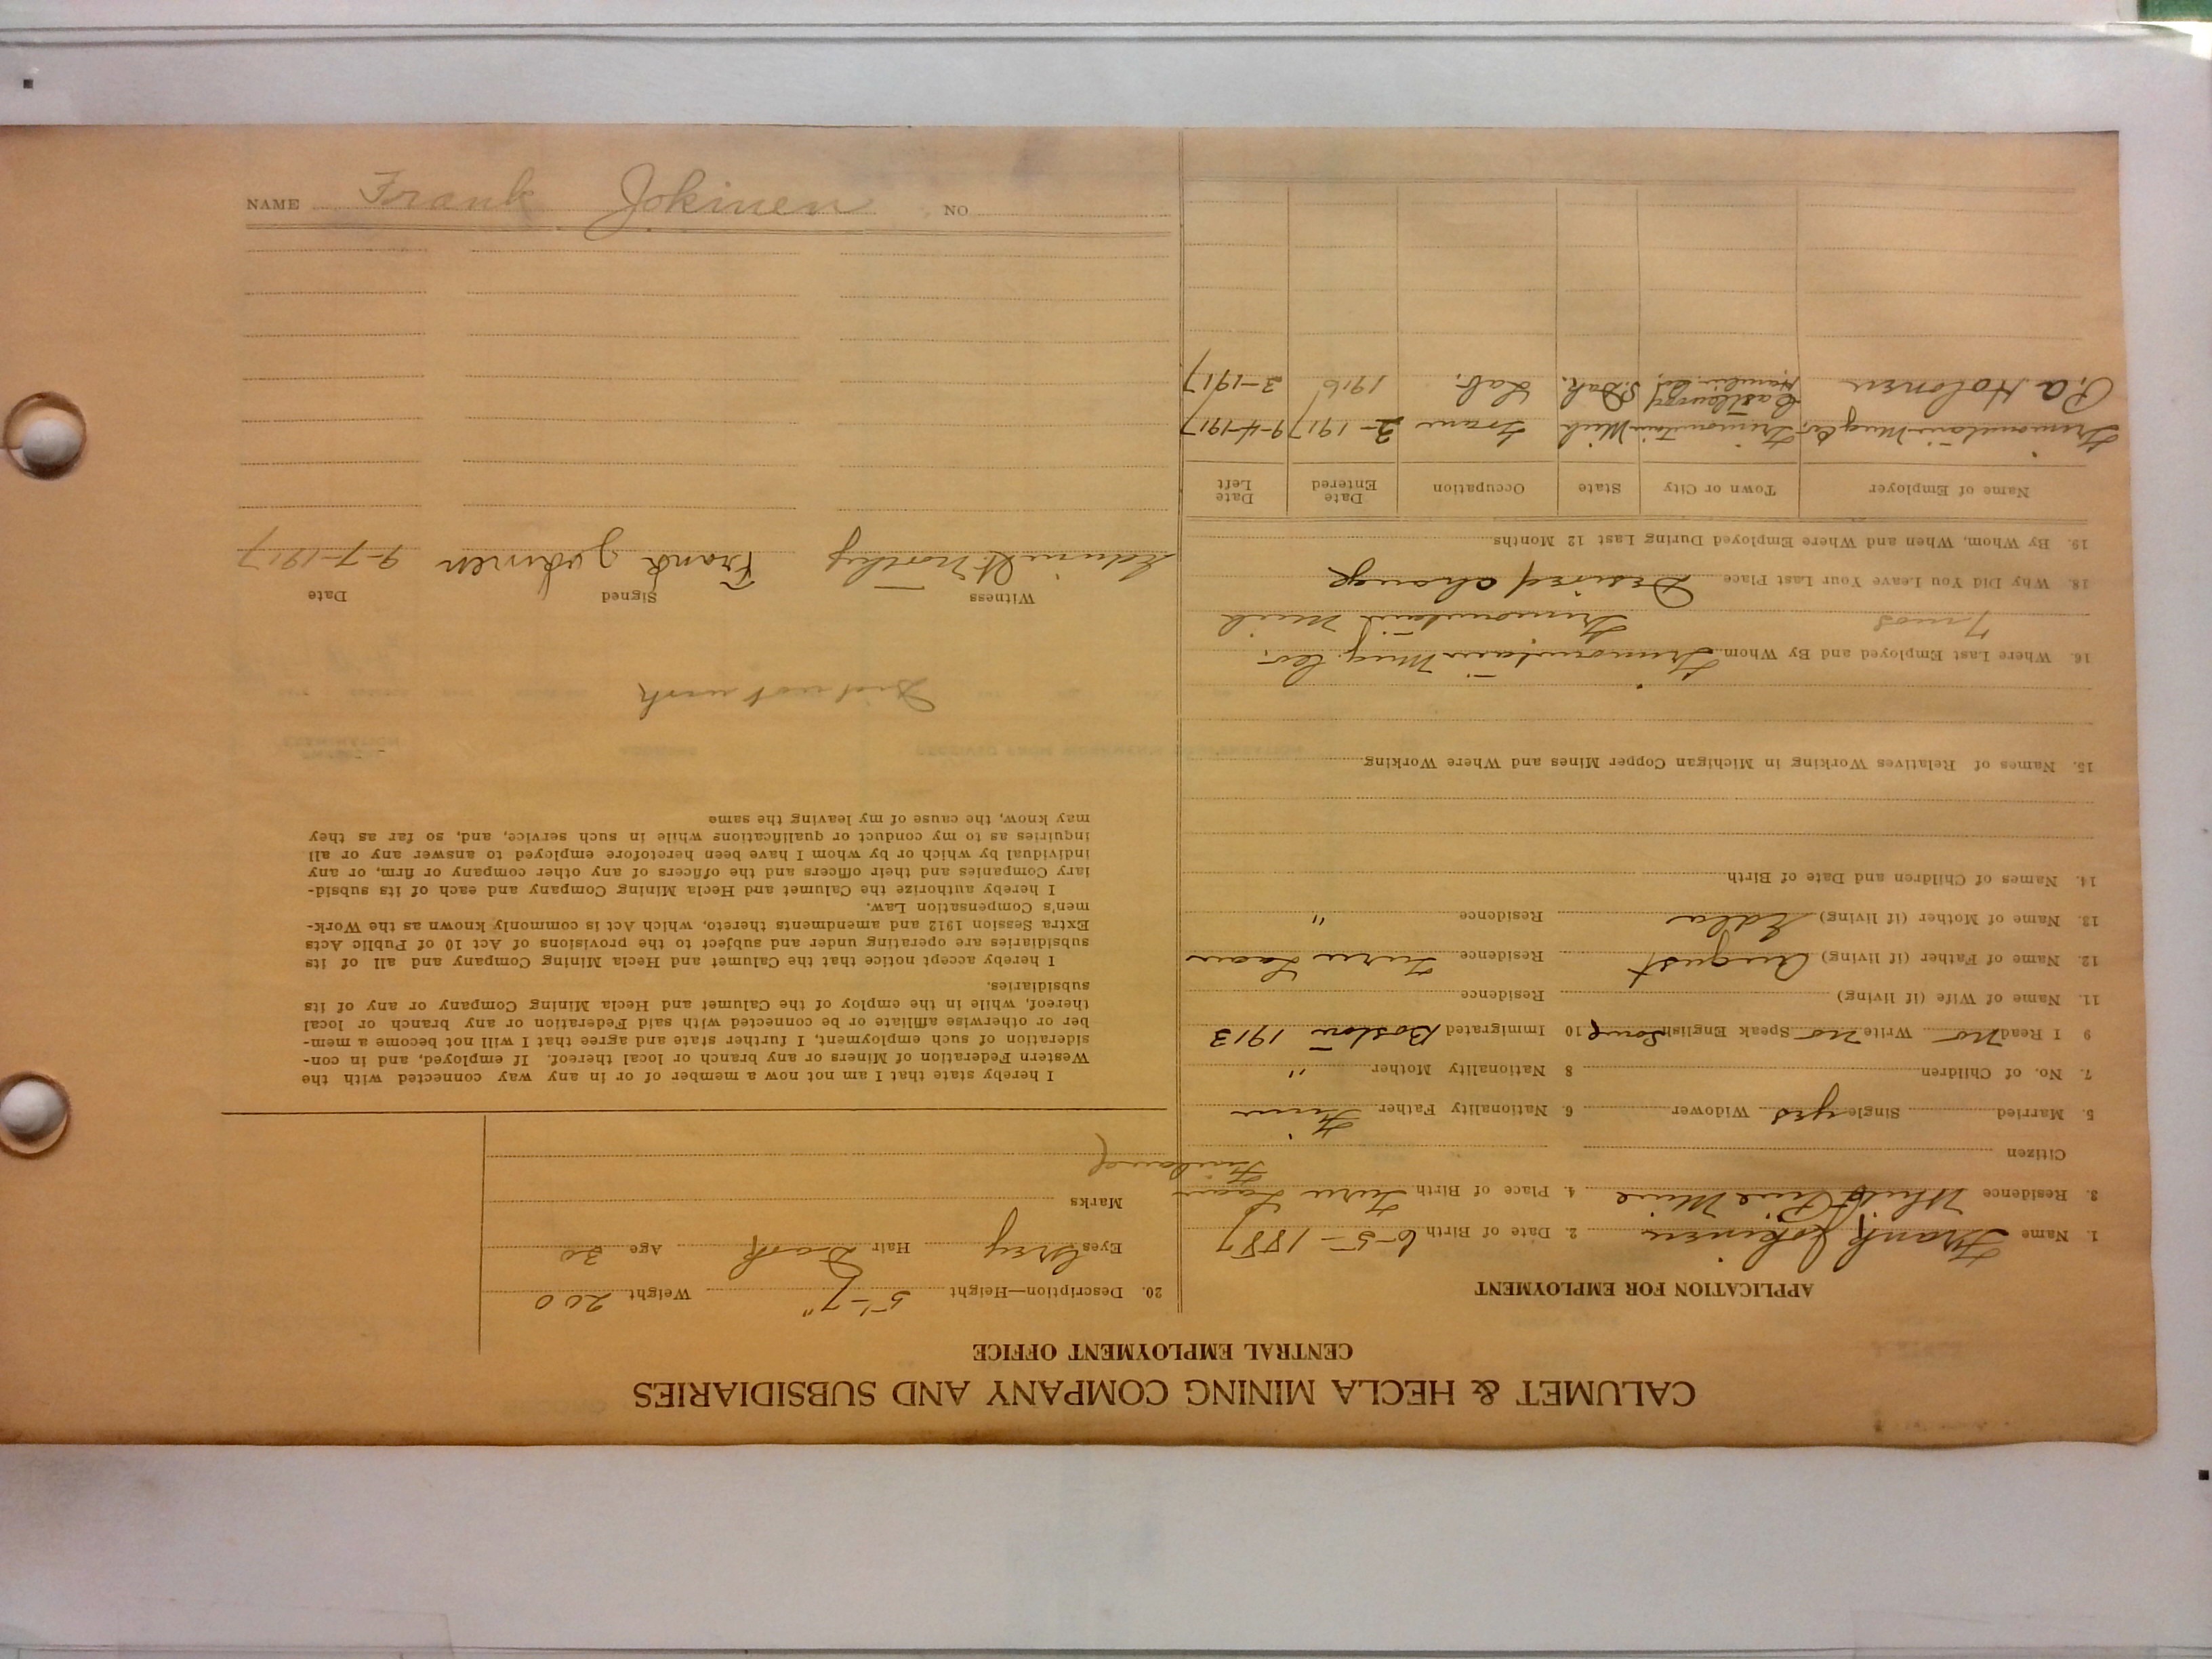 CALUMET & HECLA MINING COMPANY AND SUBSIDIARIES
CENTRAL EMPLOYMENT OFFICE
APPLICATION FOR EMPLOYMENT
1. Name Frank Jokinen 2. Date of Birth 6-5-1887
3. Residence White Pine Mine 4. Place of Birth Turun Laani
Finland
Citizen
5. Married Single yes Widower 6. Nationality Father Finn
7. No. of Children 8 Nationality Mother "
9 I Read No Write No Speak English Some 10 Immigrated Boston 1913
11. Name of Wife (if living) Residence
12. Name of Father (if living) August Residence Turun Laani
13. Name of Mother (if living) Edla Residence "
14. Names of Children and Date of Birth
15. Names of Relatives Working in Michigan Copper Mines and Where Working
16. Where Last Employed and By Whom Trimountain Mng. Co.
7 mos Trimountain Mich
18. Why Did You Leave Your Last Place Desired change
19. By Whom, When and Where Employed During Last 12 Months
Name of Employer Town or City State Occupation Date Entered Date Left
Trimountain Mng Co. Trimountain Mich Tram 2-1917 9-4-1917
Holonen Castlewood Hamlin Co, S. Dak. Lab. 1916 2-1917
20. Description—Height 5'-7" Weight 200
Eyes Grey Hair Dark Age 30
Marks
I hereby state that I am not now a member of or in any way connected with the
Western Federation of Miners or any branch or local thereof. If employed, and in con-
sideration of such employment, I further state and agree that I will not become a mem-
ber or otherwise affiliate or be connected with said Federation or any branch or local
thereof, while in the employ of the Calumet and Hecla Mining Company or any of its
subsidiaries.
I hereby accept notice that the Calumet and Hecla Mining Company and all of its
subsidiaries are operating under and subject to the provisions of Act 10 of Public Acts
Extra Session 1912 and amendments thereto, which Act is commonly known as the Work-
men's Compensation Law.
I hereby authorize the Calumet and Hecla Mining Company and each of its subsid-
iary Companies and their officers and the officers of any other company or firm, or any
individual by which or by whom I have been heretofore employed to answer any or all
inquiries as to my conduct or qualifications while in such service, and, so far as they
may know, the cause of my leaving the same
Did not work
Witness Signed Date
Frank Jokinen 9-7-1917
NAME Frank Jokinen NO